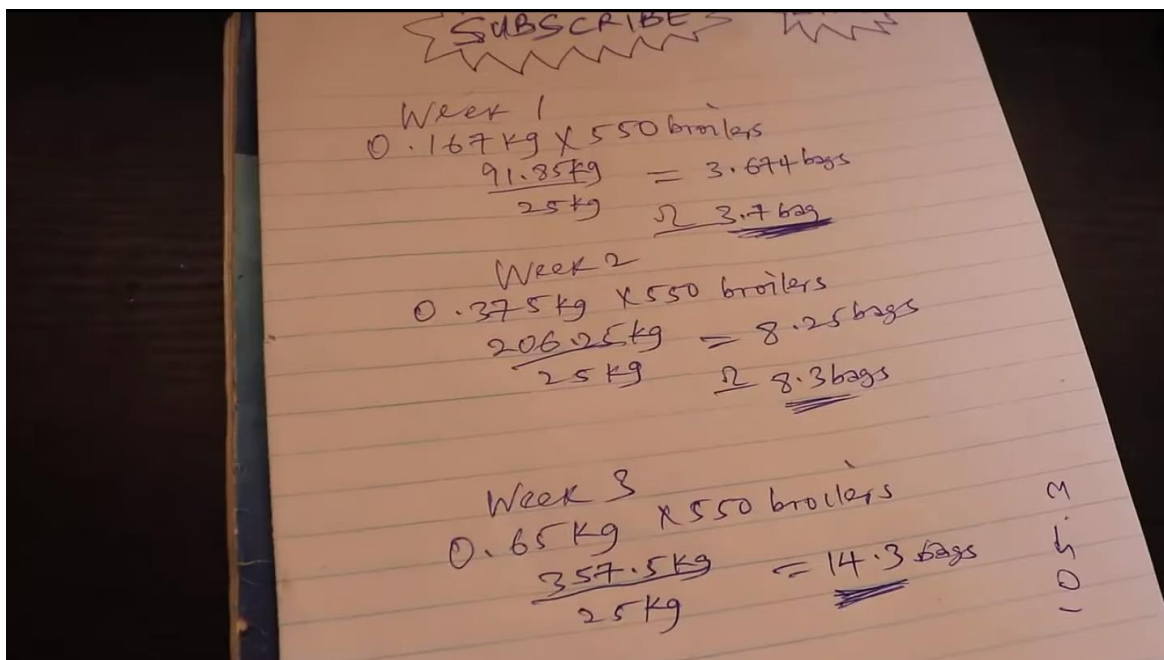 SUBSCRIBE
Week 1
0.167kg × 550 broilers
91.85kg = 3.674 bags
25kg ≏ 3.7 bag
Week 2
0.375kg × 550 broilers
206.25kg = 8.25 bags
25kg ≏ 8.3 bags
Week 3
0.65kg × 550 broilers
357.5kg = 14.3 bags
25kg